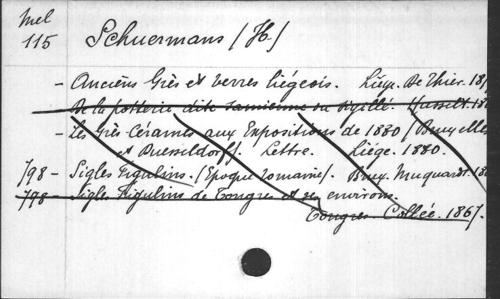 Mel
115
Schuermans (H.)
- Anciens Grès et verres liégeois. Liége. De Thier. 18
De la poterie dite samienne ou sigillé. Hasselt. 18
- Les Grès Cérames aux Expositions de 1880 (Bruxelles
et Duesseldorf). Lettre. Liége. 1880.
798 - Sigles Figulins. (Epoque romaine). Brux. Muquardt. 18
798 - Sigles Figulins de Tongres et ses environs.
Tongres. Collée. 1867.